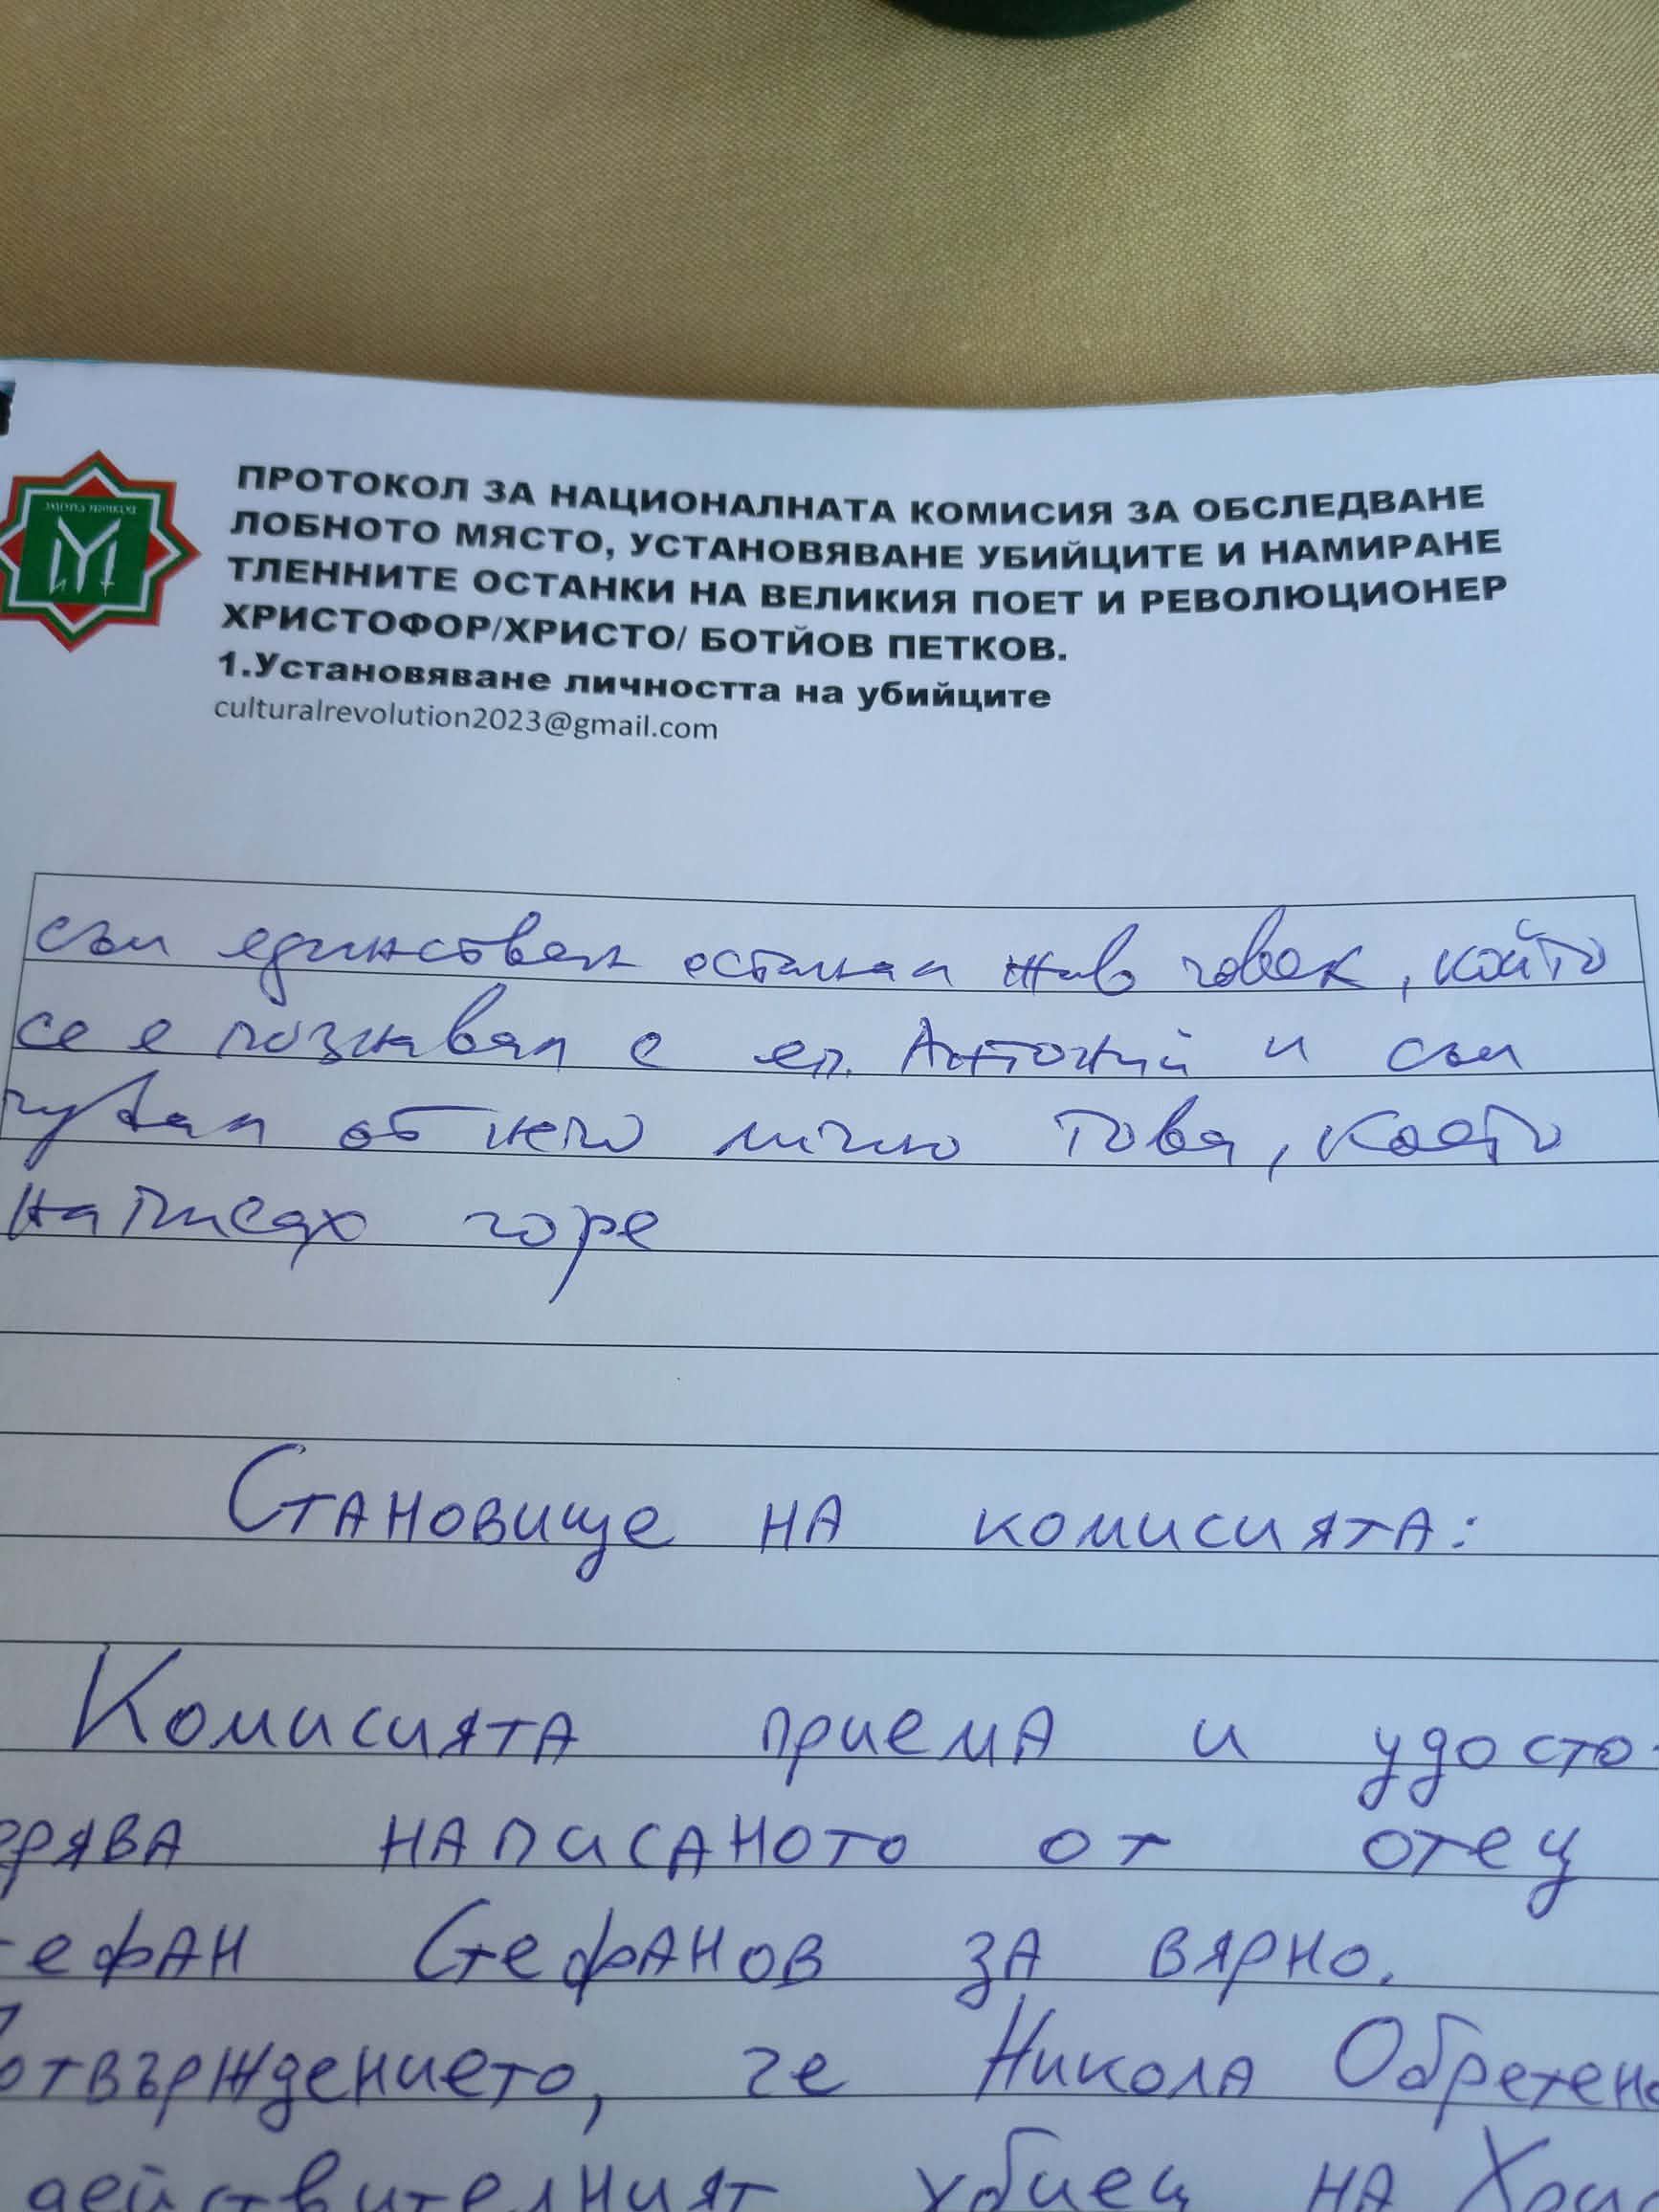 ПРОТОКОЛ ЗА НАЦИОНАЛНАТА КОМИСИЯ ЗА ОБСЛЕДВАНЕ
ЛОБНОТО МЯСТО, УСТАНОВЯВАНЕ УБИЙЦИТЕ И НАМИРАНЕ
ТЛЕННИТЕ ОСТАНКИ НА ВЕЛИКИЯ ПОЕТ И РЕВОЛЮЦИОНЕР
ХРИСТОФОР/ХРИСТО/ БОТЙОВ ПЕТКОВ.
1.Установяване личността на убийците
culturalrevolution2023@gmail.com
съм единствен останал жив човек, който
се е познавал с еп. Антоний и съм
чувал от него лично това, което
написах горе
Становище на комисията:
Комисията приема и удосто-
ерява написаното от отец
тефан Стефанов за вярно.
отвърждението, че Никола Обретено
действителният убиец на Хрис